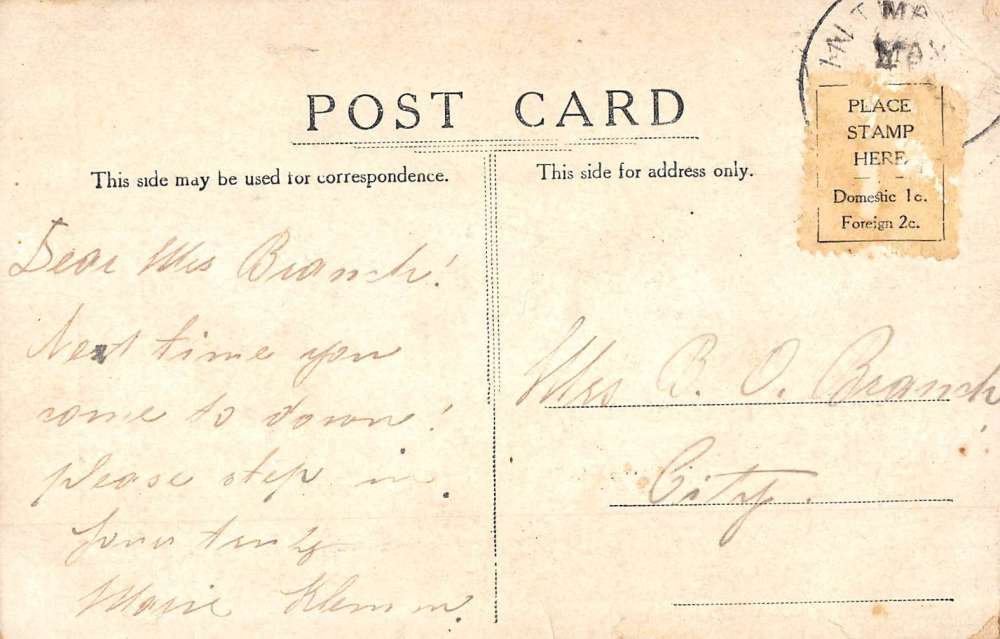 POST CARD
This side may be used for correspondence.
This side for address only.
MAY
PLACE
STAMP
HERE
Domestic 1c.
Foreign 2c.
Dear Mrs Branch!
Next time you
come to downe!
please step in.
Yours truly
Marie Klemm.
Mrs B. O. Branch
City.